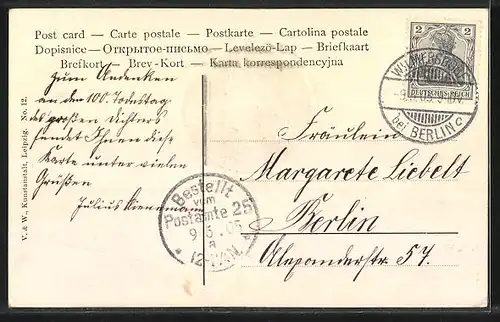 Post card — Carte postale — Postkarte — Cartolina postale
Dopisnice — Открытое-письмо — Levelező-Lap — Briefkaart
Brefkort — Brev-Kort — Karta korrespondencyjna
2 2
DEUTSCHES REICH
WILMERSDORF
bei BERLIN c
Zum Andenken
an den 100. Todestag
des großen Dichters
sendet Ihnen diese
Karte unter vielen
Grüßen
Julius
Bestellt
vom
Postamte 25
9 5 05
a
12-1/4N.
Fräulein
Margarete Liebelt
Berlin
Alexanderstr 57.
V. & W., Kunstanstalt, Leipzig. No. 12.